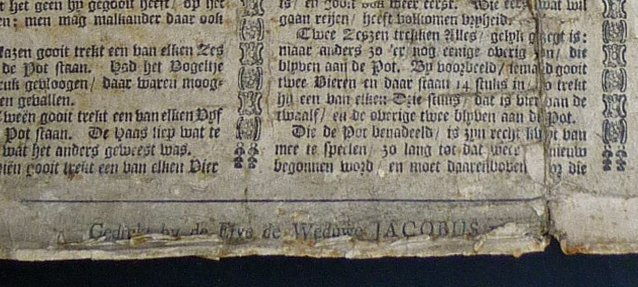 het geen hy gegooit heeft / op het
en; men mag malkander daar ook
Hazen gooit trekt een van elken Zes
de Pot staan. Had het Vogeltje
gebloogen / daar waren moog-
en gevallen.
Tween gooit trekt een van elken Vyf
Pot staan. De Haas liep wat te
wat het anders geweest was.
gooit trekt een van elken Vier
is / en gooit ook weer eerst. Wie wat wil
gaan reisen / heeft volkomen vryheid.
Twee Zeszen trekken Alles / gelyk gezegt is:
maar anders zo 'er nog eenige overig zyn / die
blyven aan de Pot. By voorbeeld / iemand gooit
twee Vieren en daar staan 14 stuks in / zo trekt
hy een van elken Drie stuks / dat is vier van de
twaalf / en de overige twee blyven aan de Pot.
Die de Pot benadeeld / is zyn recht kwyt van
mee te speelen / zo lang tot dat weer nieuw
begonnen word / en moet daarenboven die
Gedrukt by de Erve de Weduwe JACOBUS